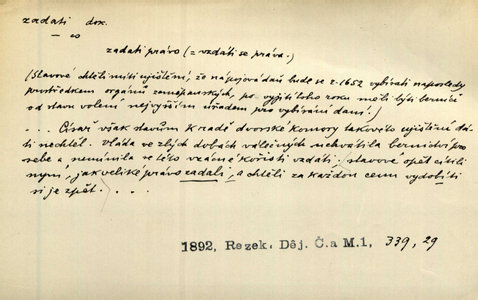 zadati dok.
— co
zadati právo (= vzdati se práva.)
(Stavové chtěli míti ujištění, že nápojová daň bude se r. 1652 vybírati naposledy
prostředkem orgánů zeměpanských, po vyjití toho roku měli býti berníci
od stavů voleni nejvyšším úřadem pro vybírání daní.)
... Císař však stavům k radě dvorské komory takového ujištění dá-
ti nechtěl. Vláda ve zlých dobách válečných uchvátila bernictví pro
sebe a neměnila se této vzácné kořisti vzdáti; stavové opět cítili
nyní, jak veliké právo zadali, a chtěli za každou cenu vydobýti
si je zpět. . . .
1892, Rezek. Děj. Č. a M. 1, 339, 29